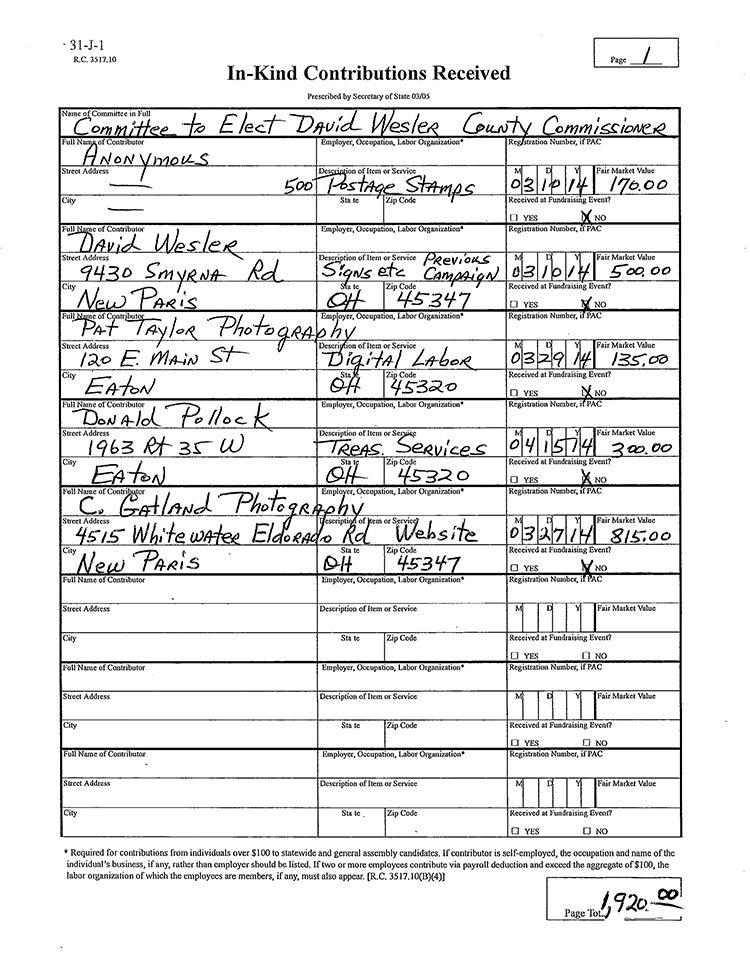 31-J-1
R.C. 3517.10
Page 1
In-Kind Contributions Received
Prescribed by Secretary of State 03/05
Name of Committee in Full
Committee to Elect David Wesler County Commissioner
Full Name of Contributor Employer, Occupation, Labor Organization* Registration Number, if PAC
Anonymous
Street Address Description of Item or Service M D Y Fair Market Value
— 500 Postage Stamps 03 10 14 170.00
City State Zip Code Received at Fundraising Event?
— ☐ YES ☒ NO
Full Name of Contributor Employer, Occupation, Labor Organization* Registration Number, if PAC
David Wesler
Street Address Description of Item or Service M D Y Fair Market Value
9430 Smyrna Rd Signs etc Previous Campaign 03 10 14 500.00
City State Zip Code Received at Fundraising Event?
New Paris OH 45347 ☐ YES ☒ NO
Full Name of Contributor Employer, Occupation, Labor Organization* Registration Number, if PAC
Pat Taylor Photography
Street Address Description of Item or Service M D Y Fair Market Value
120 E. Main St Digital Labor 03 29 14 135.00
City State Zip Code Received at Fundraising Event?
Eaton OH 45320 ☐ YES ☒ NO
Full Name of Contributor Employer, Occupation, Labor Organization* Registration Number, if PAC
Donald Pollock
Street Address Description of Item or Service M D Y Fair Market Value
1963 Rt 35 W Treas. Services 04 15 14 300.00
City State Zip Code Received at Fundraising Event?
Eaton OH 45320 ☐ YES ☒ NO
Full Name of Contributor Employer, Occupation, Labor Organization* Registration Number, if PAC
C. Gatland Photography
Street Address Description of Item or Service M D Y Fair Market Value
4515 Whitewater Eldorado Rd Website 03 27 14 815.00
City State Zip Code Received at Fundraising Event?
New Paris OH 45347 ☐ YES ☒ NO
Full Name of Contributor Employer, Occupation, Labor Organization* Registration Number, if PAC
Street Address Description of Item or Service M D Y Fair Market Value
City State Zip Code Received at Fundraising Event?
☐ YES ☐ NO
Full Name of Contributor Employer, Occupation, Labor Organization* Registration Number, if PAC
Street Address Description of Item or Service M D Y Fair Market Value
City State Zip Code Received at Fundraising Event?
☐ YES ☐ NO
Full Name of Contributor Employer, Occupation, Labor Organization* Registration Number, if PAC
Street Address Description of Item or Service M D Y Fair Market Value
City State Zip Code Received at Fundraising Event?
☐ YES ☐ NO
* Required for contributions from individuals over $100 to statewide and general assembly candidates. If contributor is self-employed, the occupation and name of the
individual's business, if any, rather than employer should be listed. If two or more employees contribute via payroll deduction and exceed the aggregate of $100, the
labor organization of which the employees are members, if any, must also appear. [R.C. 3517.10(B)(4)]
Page Tot. 1,920.00